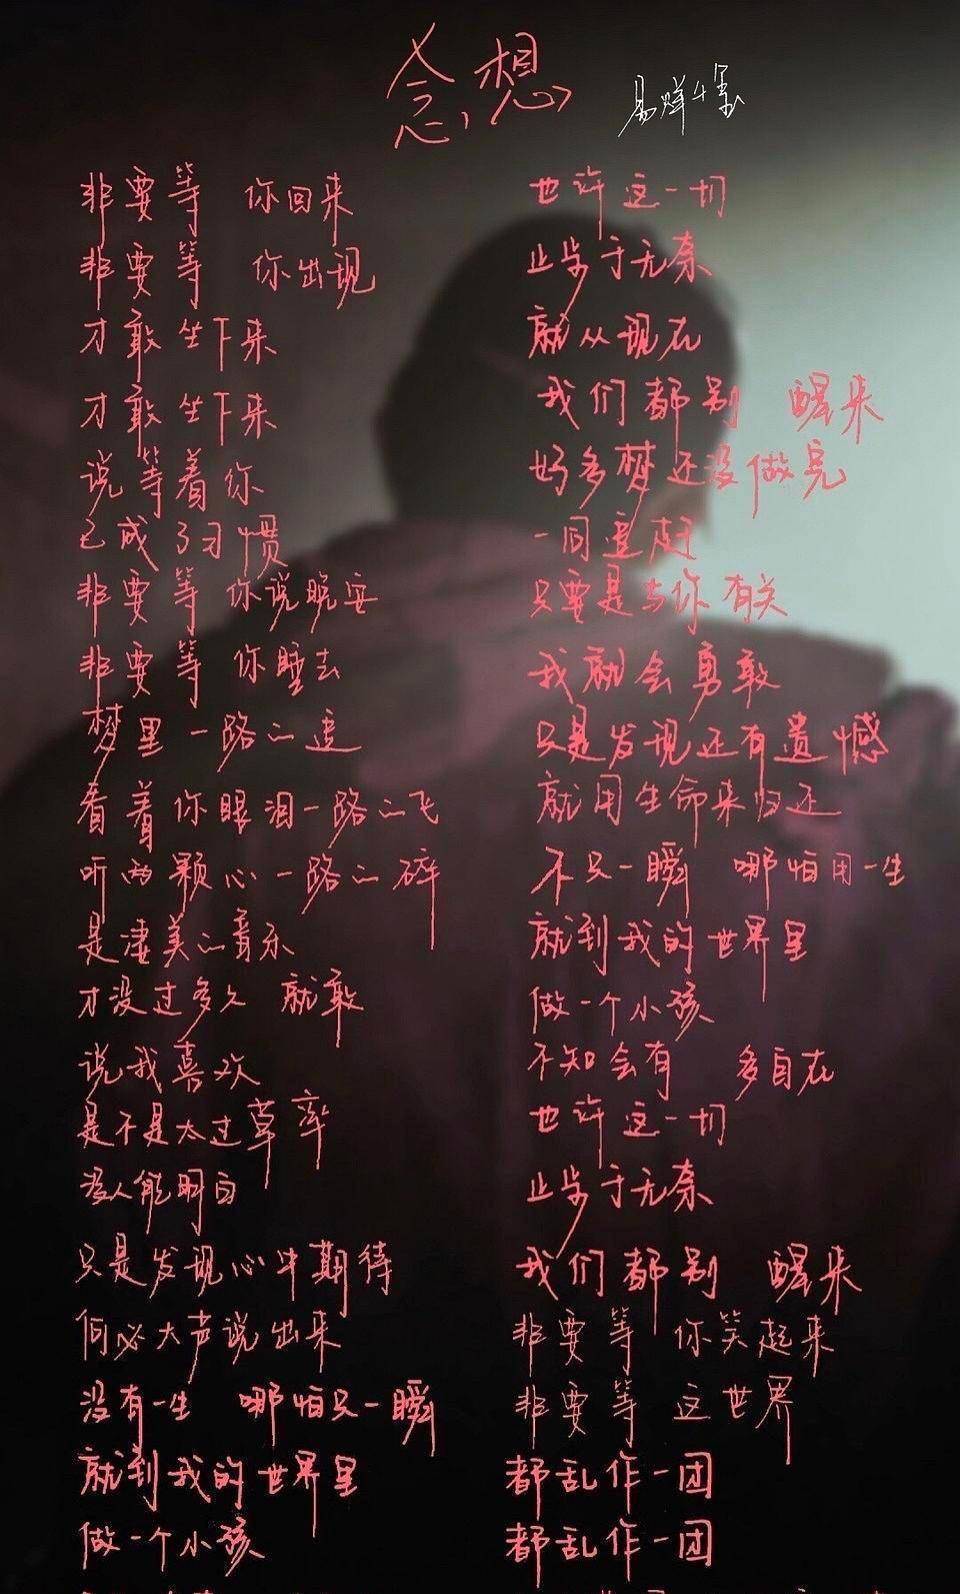 念想
易烊千玺
非要等 你回来
非要等 你出现
才敢坐下来
才敢坐下来
说等着你
已成了习惯
非要等 你说晚安
非要等 你睡去
梦里一路的追
看着你眼泪一路的飞
听两颗心一路的碎
是凄美的音乐
才没过多久 就敢
说我喜欢
是不是太过草率
没人能明白
只是发现心中期待
何必大声说出来
没有一生 哪怕只一瞬
就到我的世界里
做一个小孩
也许这一切
止步于无奈
就从现在
我们都别 醒来
好多梦还没做完
一同追赶
只要是与你有关
我就会勇敢
只是发现还有遗憾
就用生命来归还
不只一瞬 哪怕用一生
就到我的世界里
做一个小孩
不知会有 多自在
也许这一切
止步于无奈
我们都别 醒来
非要等 你笑起来
非要等 这世界
都乱作一团
都乱作一团